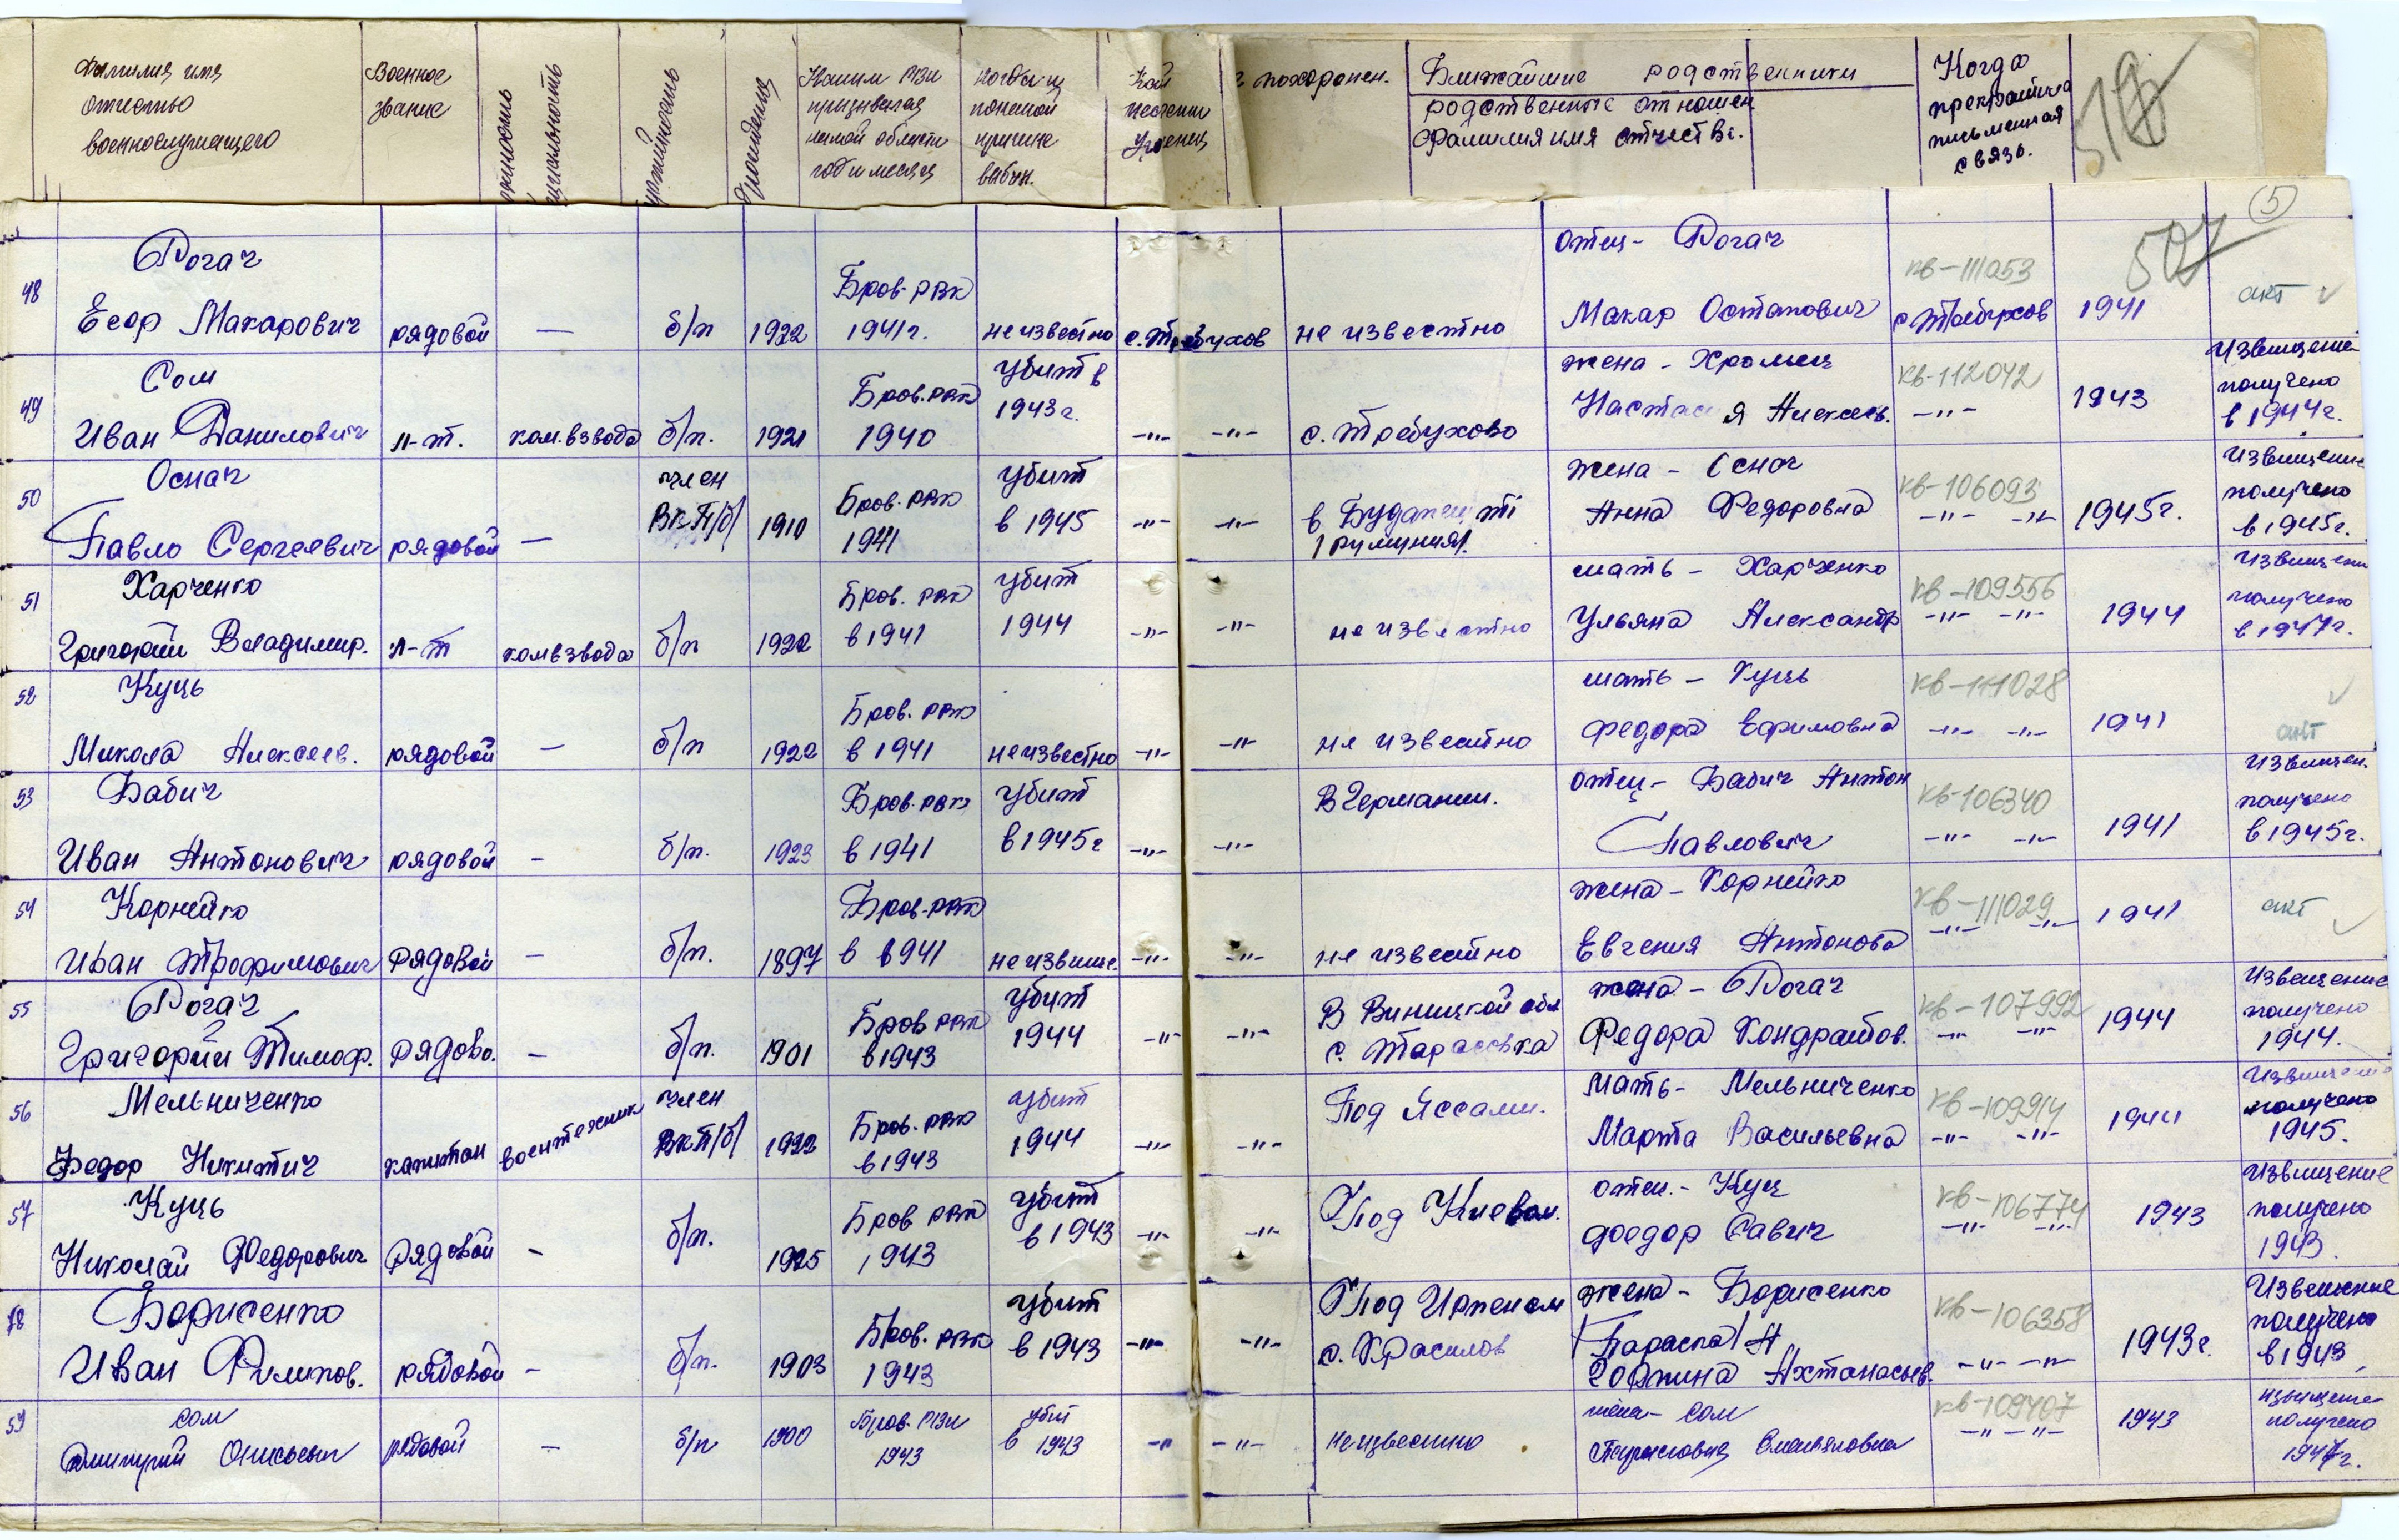 Фамилия имя
отчество
военнослужащего
Военное
звание
Каким РВК
призывался
год и месяц
когда и
по какой
причине
выбыл.
похоронен.
Ближайшие родственники
родственные отношен
фамилия имя отчеств.
Когда
прекратилась
письменная
связь.
5
507
48 Рогач
Егор Макарович рядовой — б/п 1922 Бров. РВК 1941г. неизвестно с. Требухов не известно
отец - Рогач
Макар Остапович с Требухов кв-111053 1941 акт
49 Сом
Иван Данилович л-т. ком. взвода б/п. 1921 Бров. РВК 1940 убит в 1943г. -"- -"- с. Требухово
жена - Хромец
Настасия Алексеев. кв-112042 -"- 1943 Извещение получено в 1944г.
50 Оснач
Павло Сергеевич рядовой — член ВКП/б/ 1910 Бров. РВК 1941 убит в 1945 -"- -"- в Будапешті /Румыния/.
жена - Оснач
Анна Федоровна кв-106093 -"- -"- 1945г. Извещение получено в 1945г.
51 Харченко
Григорий Владимир. л-т ком взвода б/п 1922 Бров. РВК в 1941 убит 1944 -"- -"- не известно
мать - Харченко
Ульяна Александр кв-109556 -"- -"- 1944 Извещени получено в 1947г.
52 Куць
Микола Алексеев. рядовой — б/п 1922 Бров. РВК в 1941 неизвестно -"- -"- не известно
мать - Куць
Федора Ефимовна кв-111028 -"- -"- 1941 акт
53 Бабич
Иван Антонович рядовой - б/п. 1923 Бров. РВК в 1941 убит в 1945г -"- -"- В Германии.
отец - Бабич Антон
Павлович кв-106340 -"- -"- 1941 Извещен. получено в 1945г.
54 Корнейко
Иван Трофимович рядовой - б/п. 1897 Бров. РВК в 1941 -"- -"- не известно
жена - Корнейко
Евгения Антонова кв-111029 -"- -"- 1941 акт
55 Рогач
Григорий Тимоф. рядово. - б/п. 1901 Бров РВК в 1943 убит 1944 -"- -"- В Виницкой обл с. Тарасовка
жена - Рогач
Федора Кондратов. кв-107992 -"- -"- 1944 Извещение получено 1944.
56 Мельниченко
Федор Никитич капитан воентехник член ВКП/б/ 1922 Бров. РВК в 1943 убит 1944 -"- -"- Под Яссами.
Мать - Мельниченко
Марта Васильевна кв-109914 -"- -"- 1944 Извещение получено 1945.
57 Куць
Николай Федорович рядовой - б/п. 1925 Бров РВК 1943 убит в 1943 -"- -"- Под Киевом.
отец. - Куц
Федор Савич кв-106774 -"- -"- 1943 Извещение получено 1943.
Борисенко
Иван Филипов. рядовой - б/п. 1903 Бров. РВК 1943 убит в 1943 -"- -"- Под Ирпенем с. Красилов
жена - Борисенко
/Параска/ кв-106358 -"- -"- 1943г. Извещение получено в 1943
59 Сом
рядовой — б/п 1900 Бров. РВК 1943 убит в 1943 -"- -"- неизвестно
жена - Сом
кв-109407 -"- -"- 1943 извещение получено 1947г.